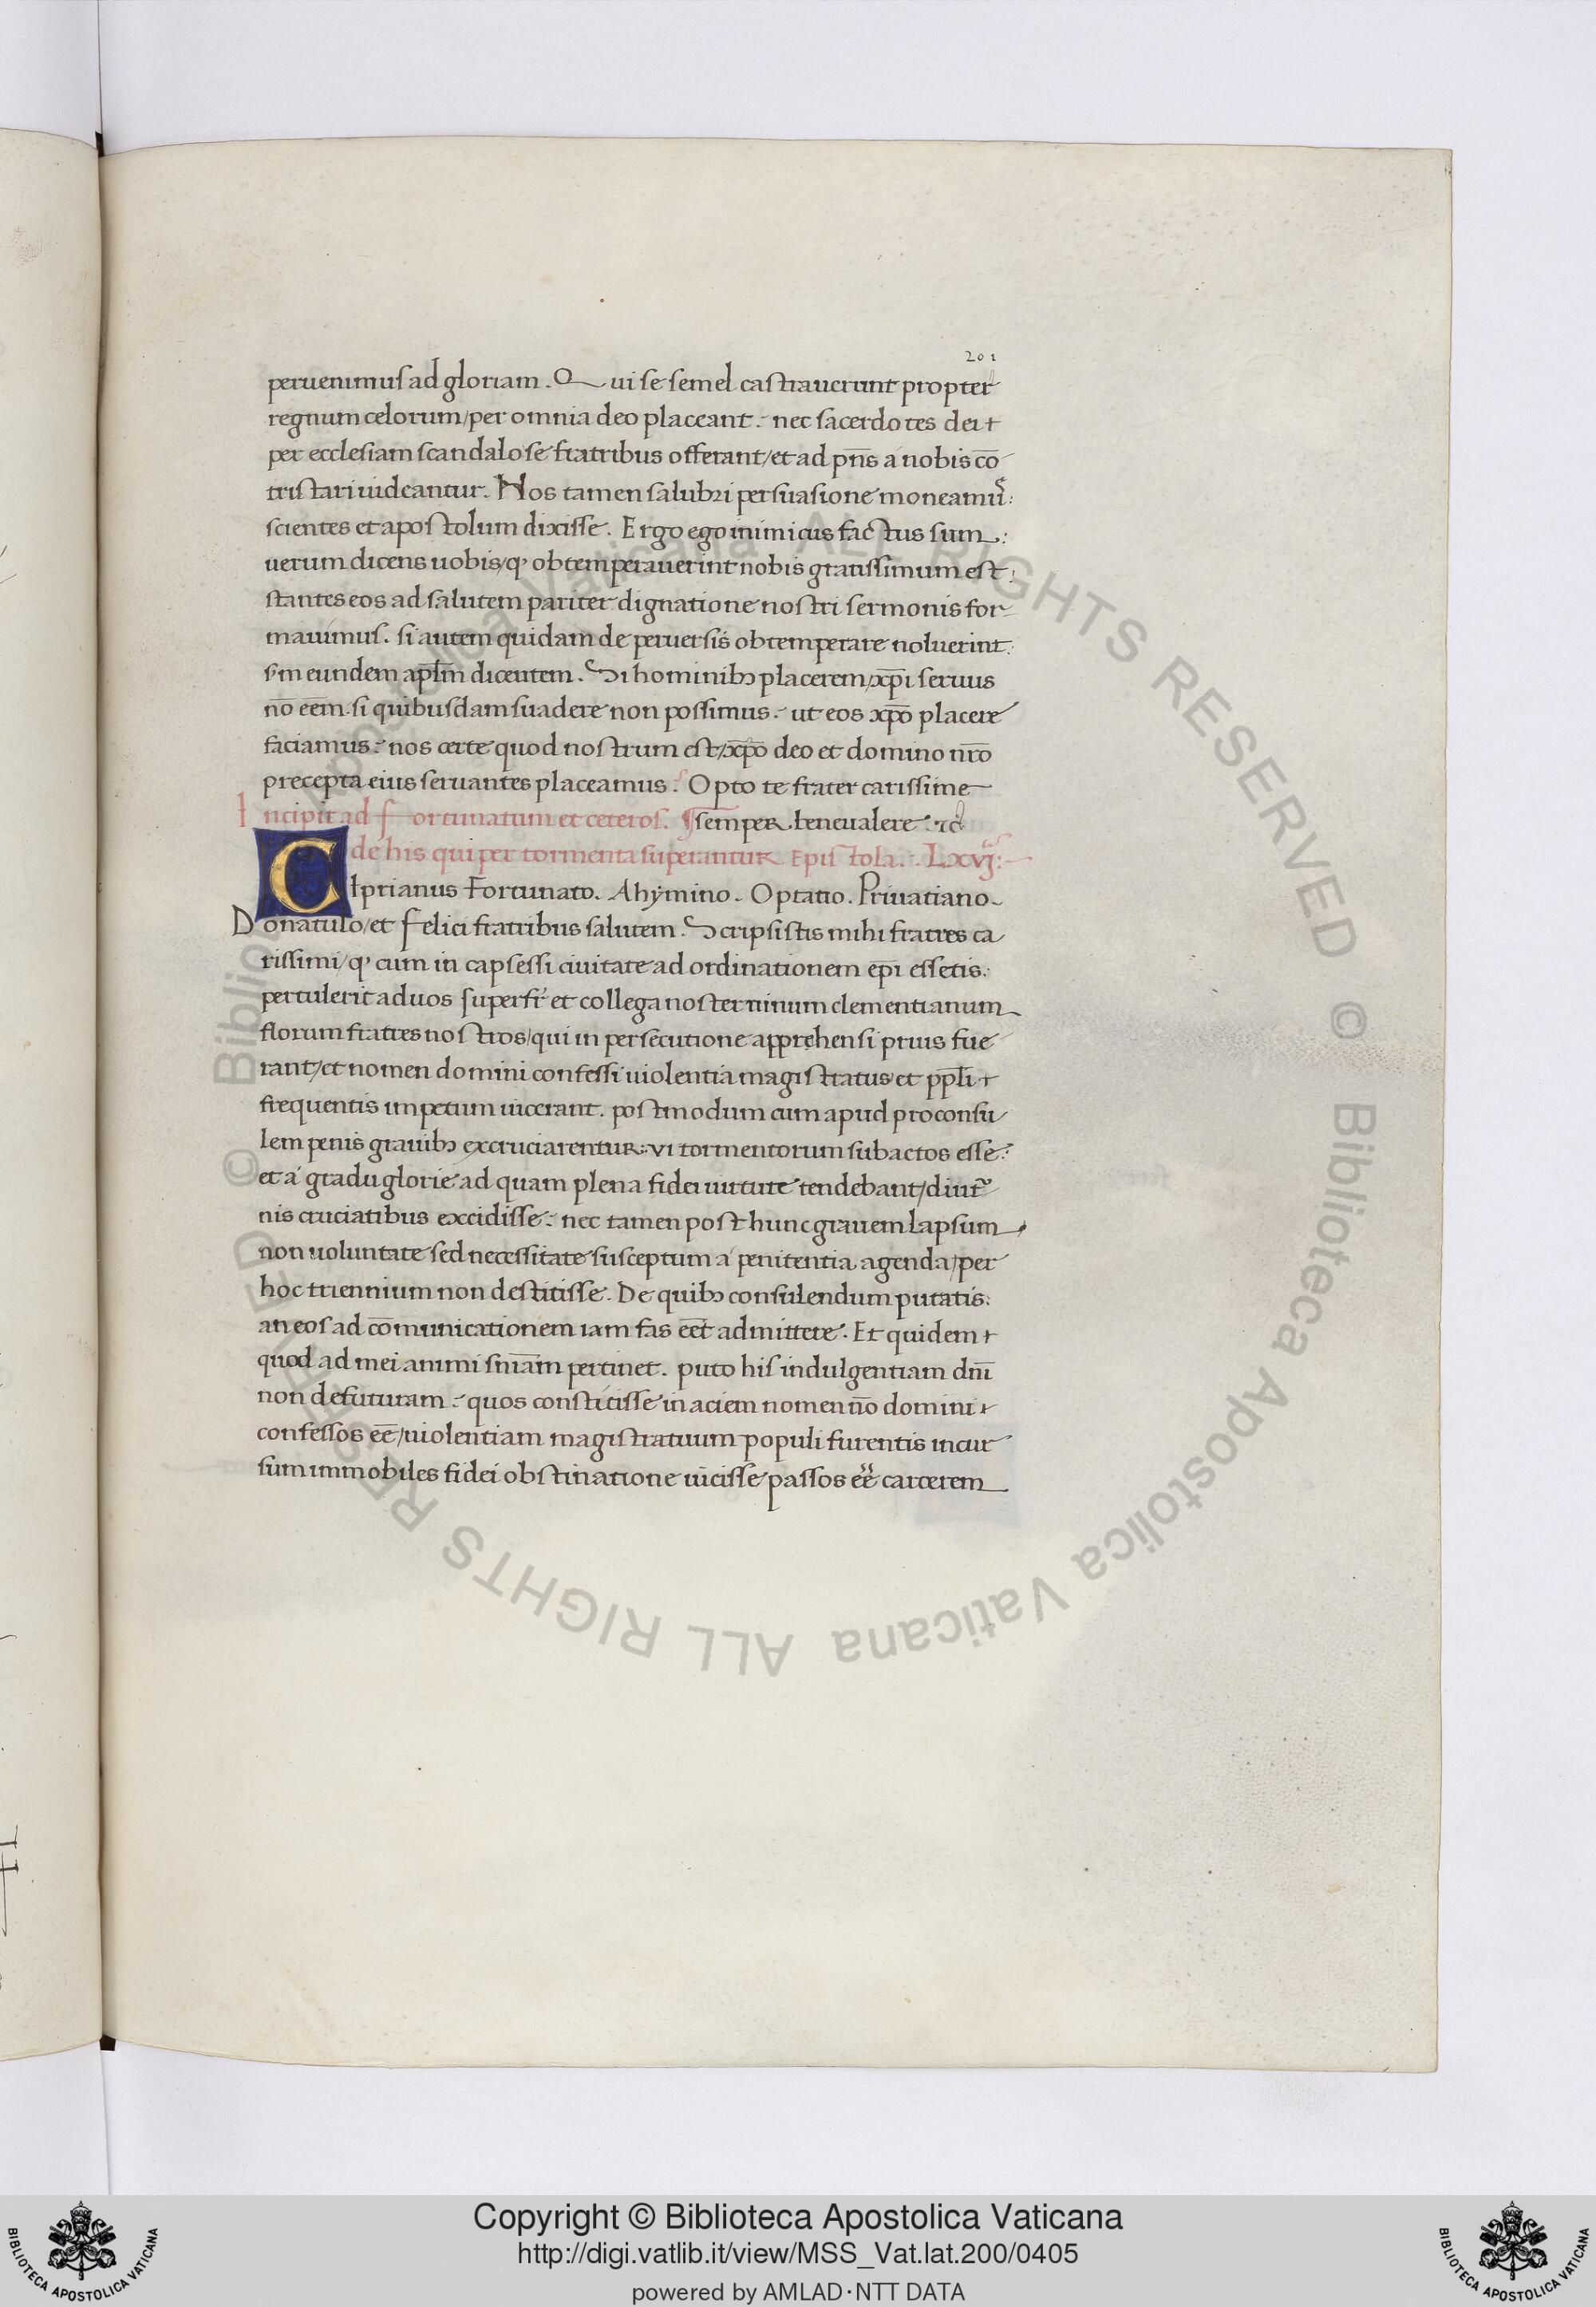 201
peruenimus ad gloriam. Qui se semel castrauerunt propter
regnum celorum/per omnia deo placeant. nec sacerdotes dei
per ecclesiam scandalose fratribus offerant/et ad pn̄s a nobis cō
tristari uideantur. Nos tamen salubri persuasione moneamus:
scientes et apostolum dixisse. Ergo ego inimicus factus sum:
uerum dicens uobis/qꝫ obtemperauerint nobis gratissimum est:
stantes eos ad salutem pariter dignatione nostri sermonis for
mauimus. si autem quidam de peruersis obtemperare noluerint.
eundem apl̄m dicentem. Si hominibꝫ placerem/xp̄i seruus
nō eēm. si quibusdam suadere non possimus. ut eos xp̄o placere
faciamus. nos certe quod nostrum est/xp̄o deo et domino nr̄o
precepta eius seruantes placeamus. Opto te frater carissime
Incipit ad fortunatum et ceteros. ¶ semper bene ualere.
de his qui per tormenta superantur Epistola. Lxvj:
Ciprianus Fortunato. Ahymino. Optatio. Priuatiano.
Donatulo/et felici fratribus salutem. Scripsistis mihi fratres ca
rissimi/qꝫ cum in capsessi ciuitate ad ordinationem ep̄i essetis.
pertulerit ad uos superfr̄ et collega noster ninum clementianum
florum fratres nostros/qui in persecutione apprehensi prius fue
rant/et nomen domini confessi uiolentia magistratus et ppl̄i
frequentis impetum uicerant. postmodum cum apud proconsu
lem penis grauibꝫ excruciarentur: vi tormentorum subactos esse:
et a gradu glorie ad quam plena fidei uirtute tendebant/diut
nis cruciatibus excidisse. nec tamen post hunc grauem lapsum
non uoluntate sed necessitate susceptum a penitentia agenda/per
hoc triennium non destitisse. De quibꝫ consulendum putatis:
an eos ad cōmunicationem iam fas eēt admittere. Et quidem
quod ad mei animi sn̄iam pertinet. puto his indulgentiam dn̄i
non defuturam. quos constitisse in aciem nomen nō domini
confessos eē/uiolentiam magistratuum populi furentis incur
sum immobiles fidei obstinatione uicisse passos eē carcerem
© Biblioteca Apostolica Vaticana ALL RIGHTS RESERVED © Biblioteca Apostolica Vaticana ALL RIGHTS RESERVED
Copyright © Biblioteca Apostolica Vaticana
http://digi.vatlib.it/view/MSS_Vat.lat.200/0405
powered by AMLAD·NTT DATA
BIBLIOTECA APOSTOLICA VATICANA
BIBLIOTECA APOSTOLICA VATICANA